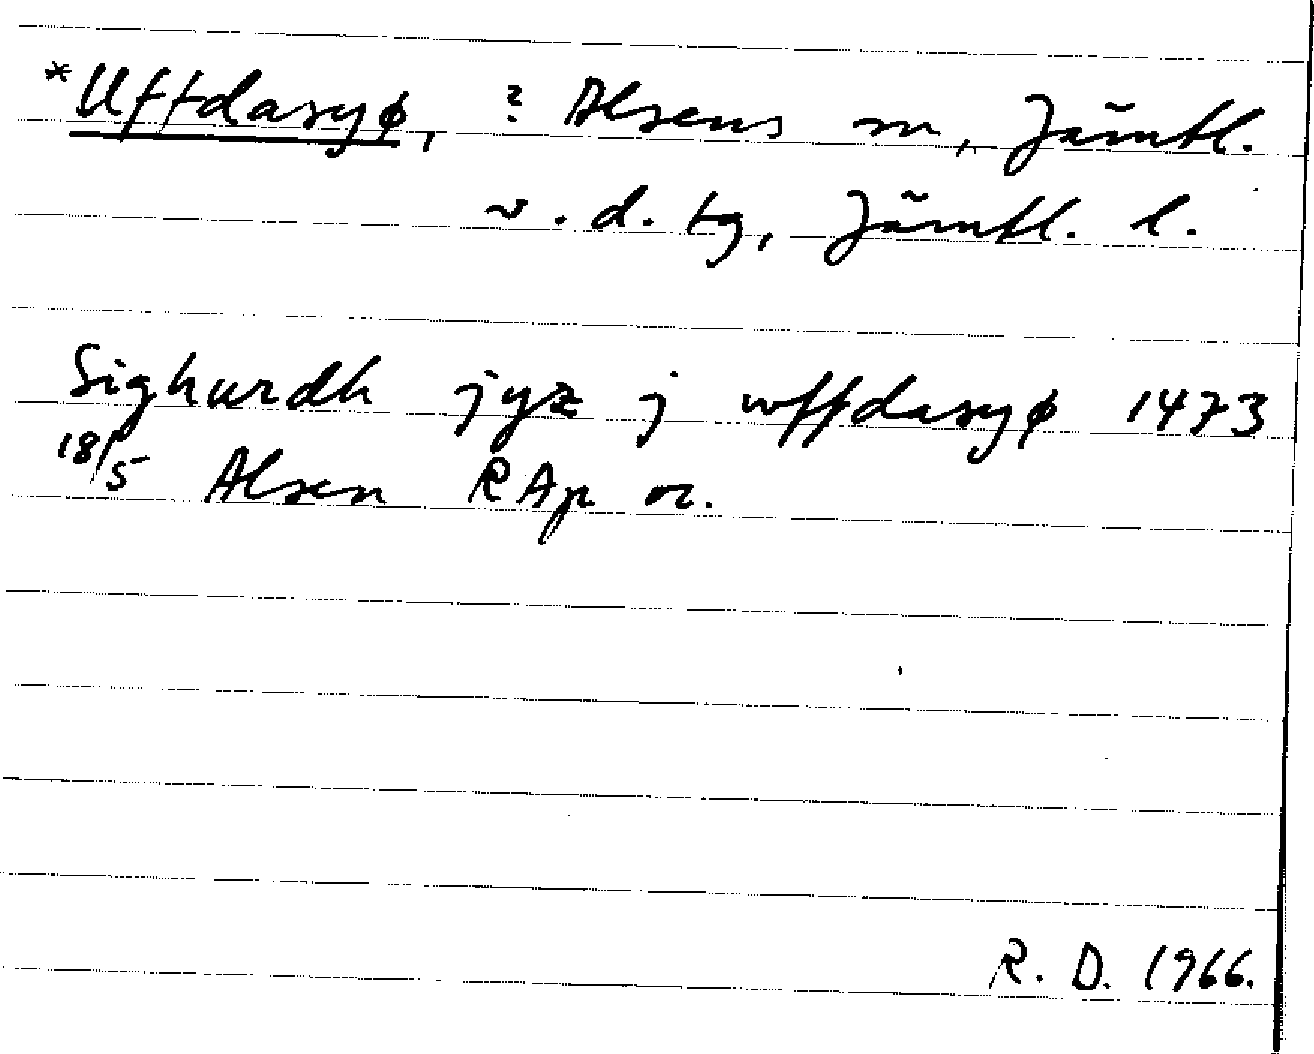 *Uffdasyø, ? Alsens sn, Jämtl.
v. d. tg, Jämtl. l.
Sighurdh jyz j wffdasyø 1473
18/5 Alsen RAp or.
R. D. 1966.